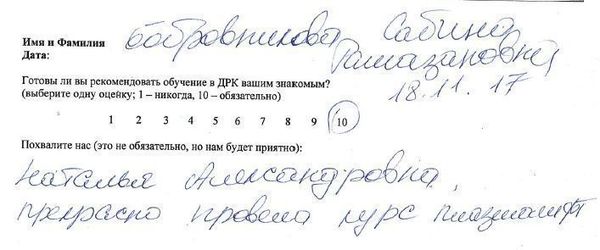 Имя и Фамилия Бобровникова Сабина
Рамазановна
Дата: 18.11.17
Готовы ли вы рекомендовать обучение в ДРК вашим знакомым?
(выберите одну оценку; 1 – никогда, 10 – обязательно)
1 2 3 4 5 7 8 9 10
Похвалите нас (это не обязательно, но нам будет приятно):
Наталья Александровна,
прекрасно провела курс